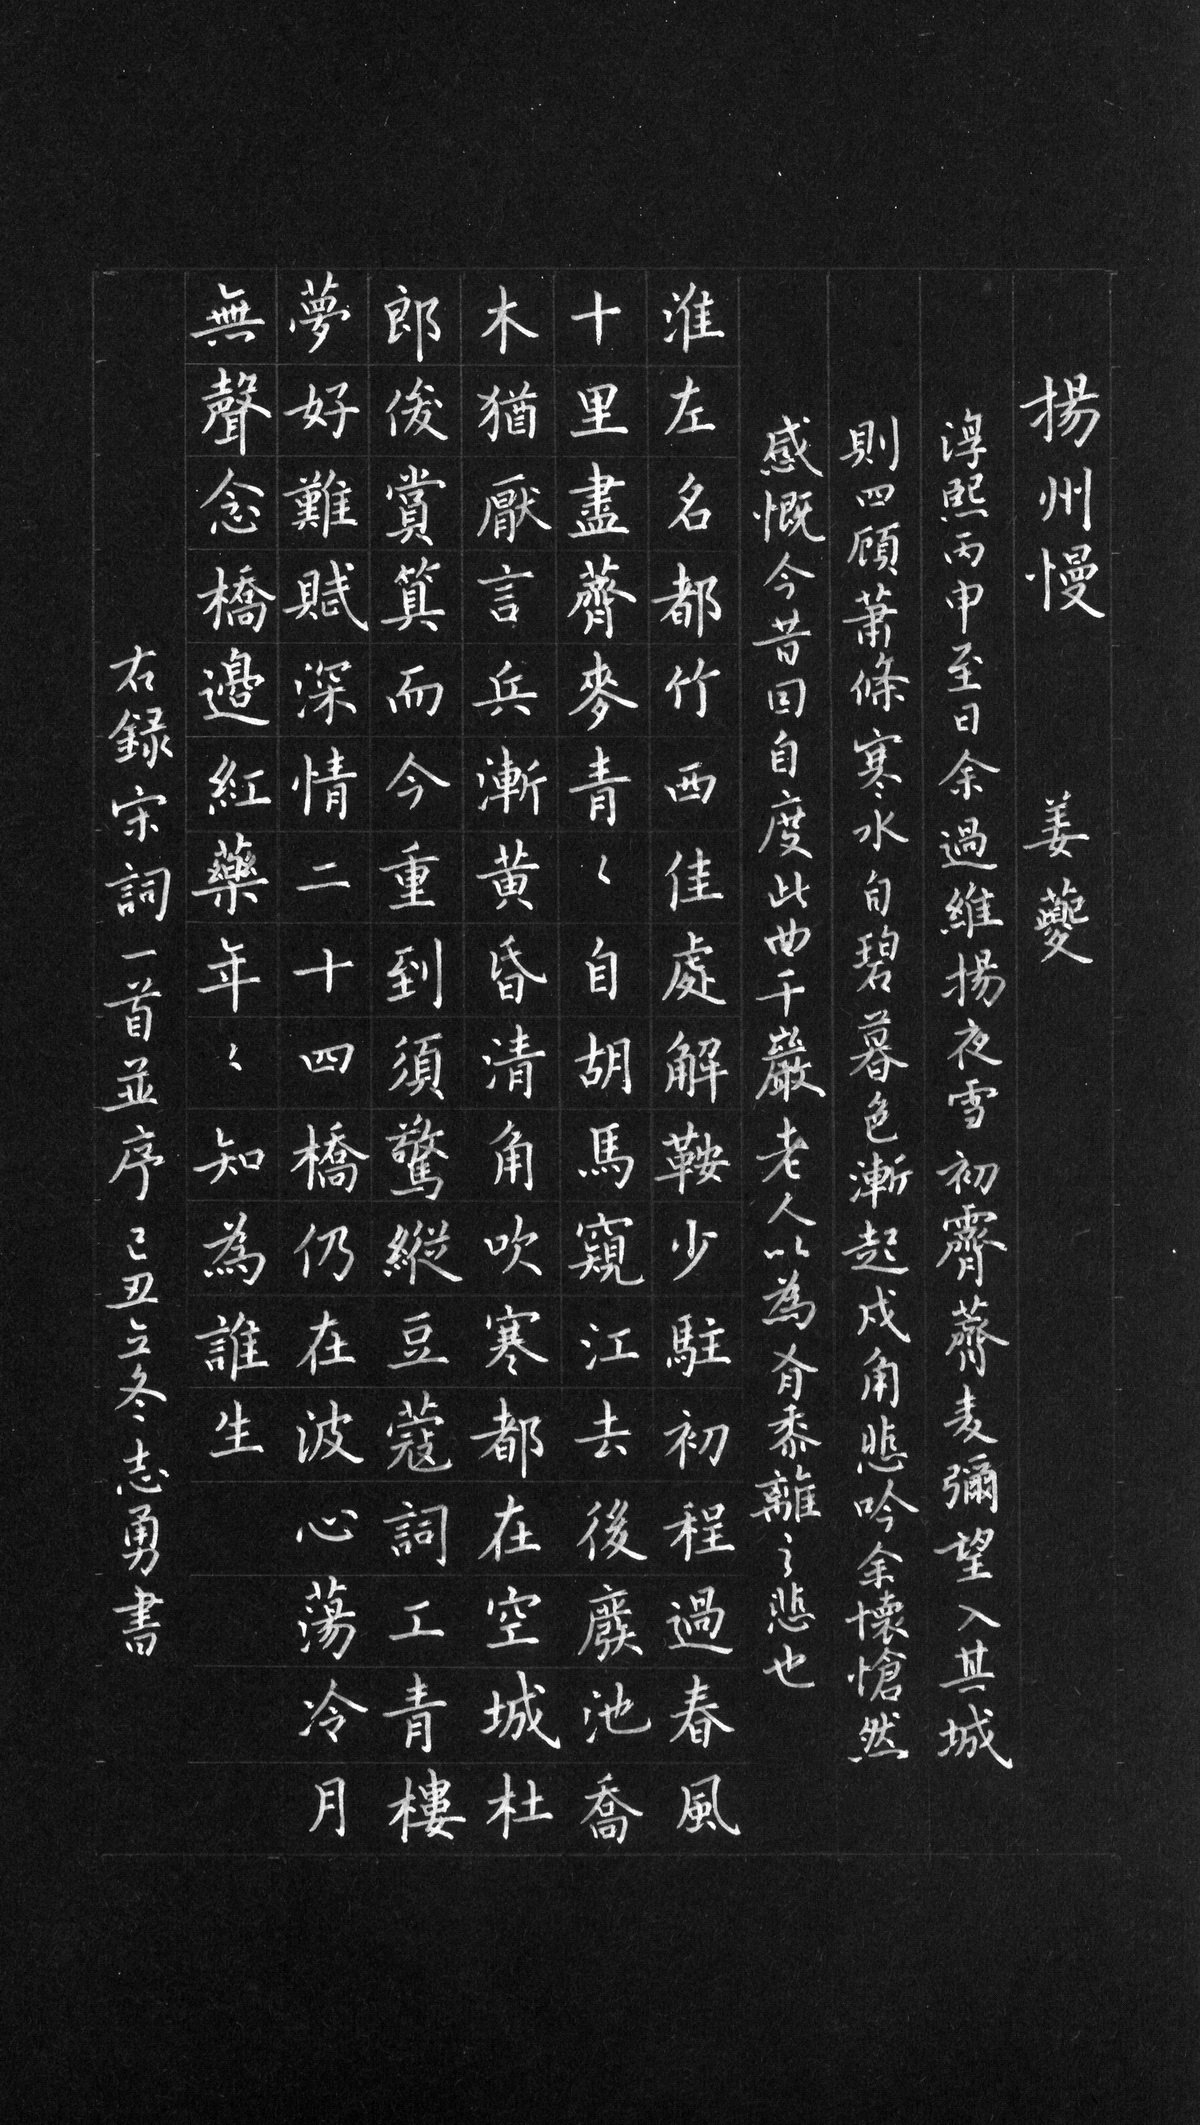 揚州慢　姜夔
淳熙丙申至日余過維揚夜雪初霽薺麦彌望入其城
則四顧蕭條寒水自碧暮色漸起戍角悲吟余懷愴然
感慨今昔因自度此曲千巖老人以為有黍離之悲也
淮左名都竹西佳處解鞍少駐初程過春風
十里盡薺麥青〻自胡馬窺江去後廢池喬
木猶厭言兵漸黄昏清角吹寒都在空城杜
郎俊賞算而今重到須驚縱豆蔻詞工青樓
夢好難賦深情二十四橋仍在波心蕩冷月
無聲念橋邊紅藥年〻知為誰生
右録宋詞一首並序己丑立冬志勇書